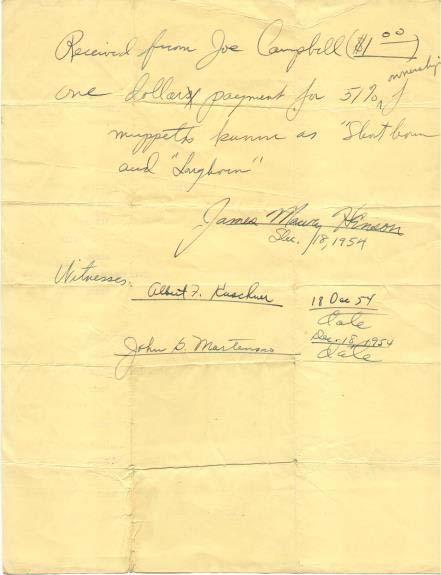 Received from Joe Campbell ($1 00)
ownership
one dollar payment for 51% of
muppets known as "Shorthorn"
and "Longhorn"
James Maury Henson
Dec. 18, 1954
Witnesses:
Albert F. Kuschner 18 Dec 54
Date
John D. Dec. 18, 1954
Date